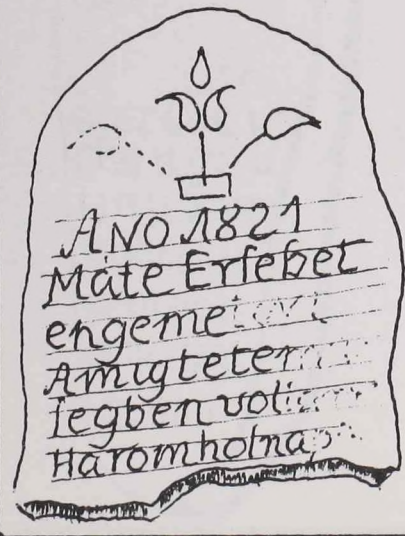 ANO 1821
Máte Erſebet
engeme
Amigteter
ſegben vol
Háromholna